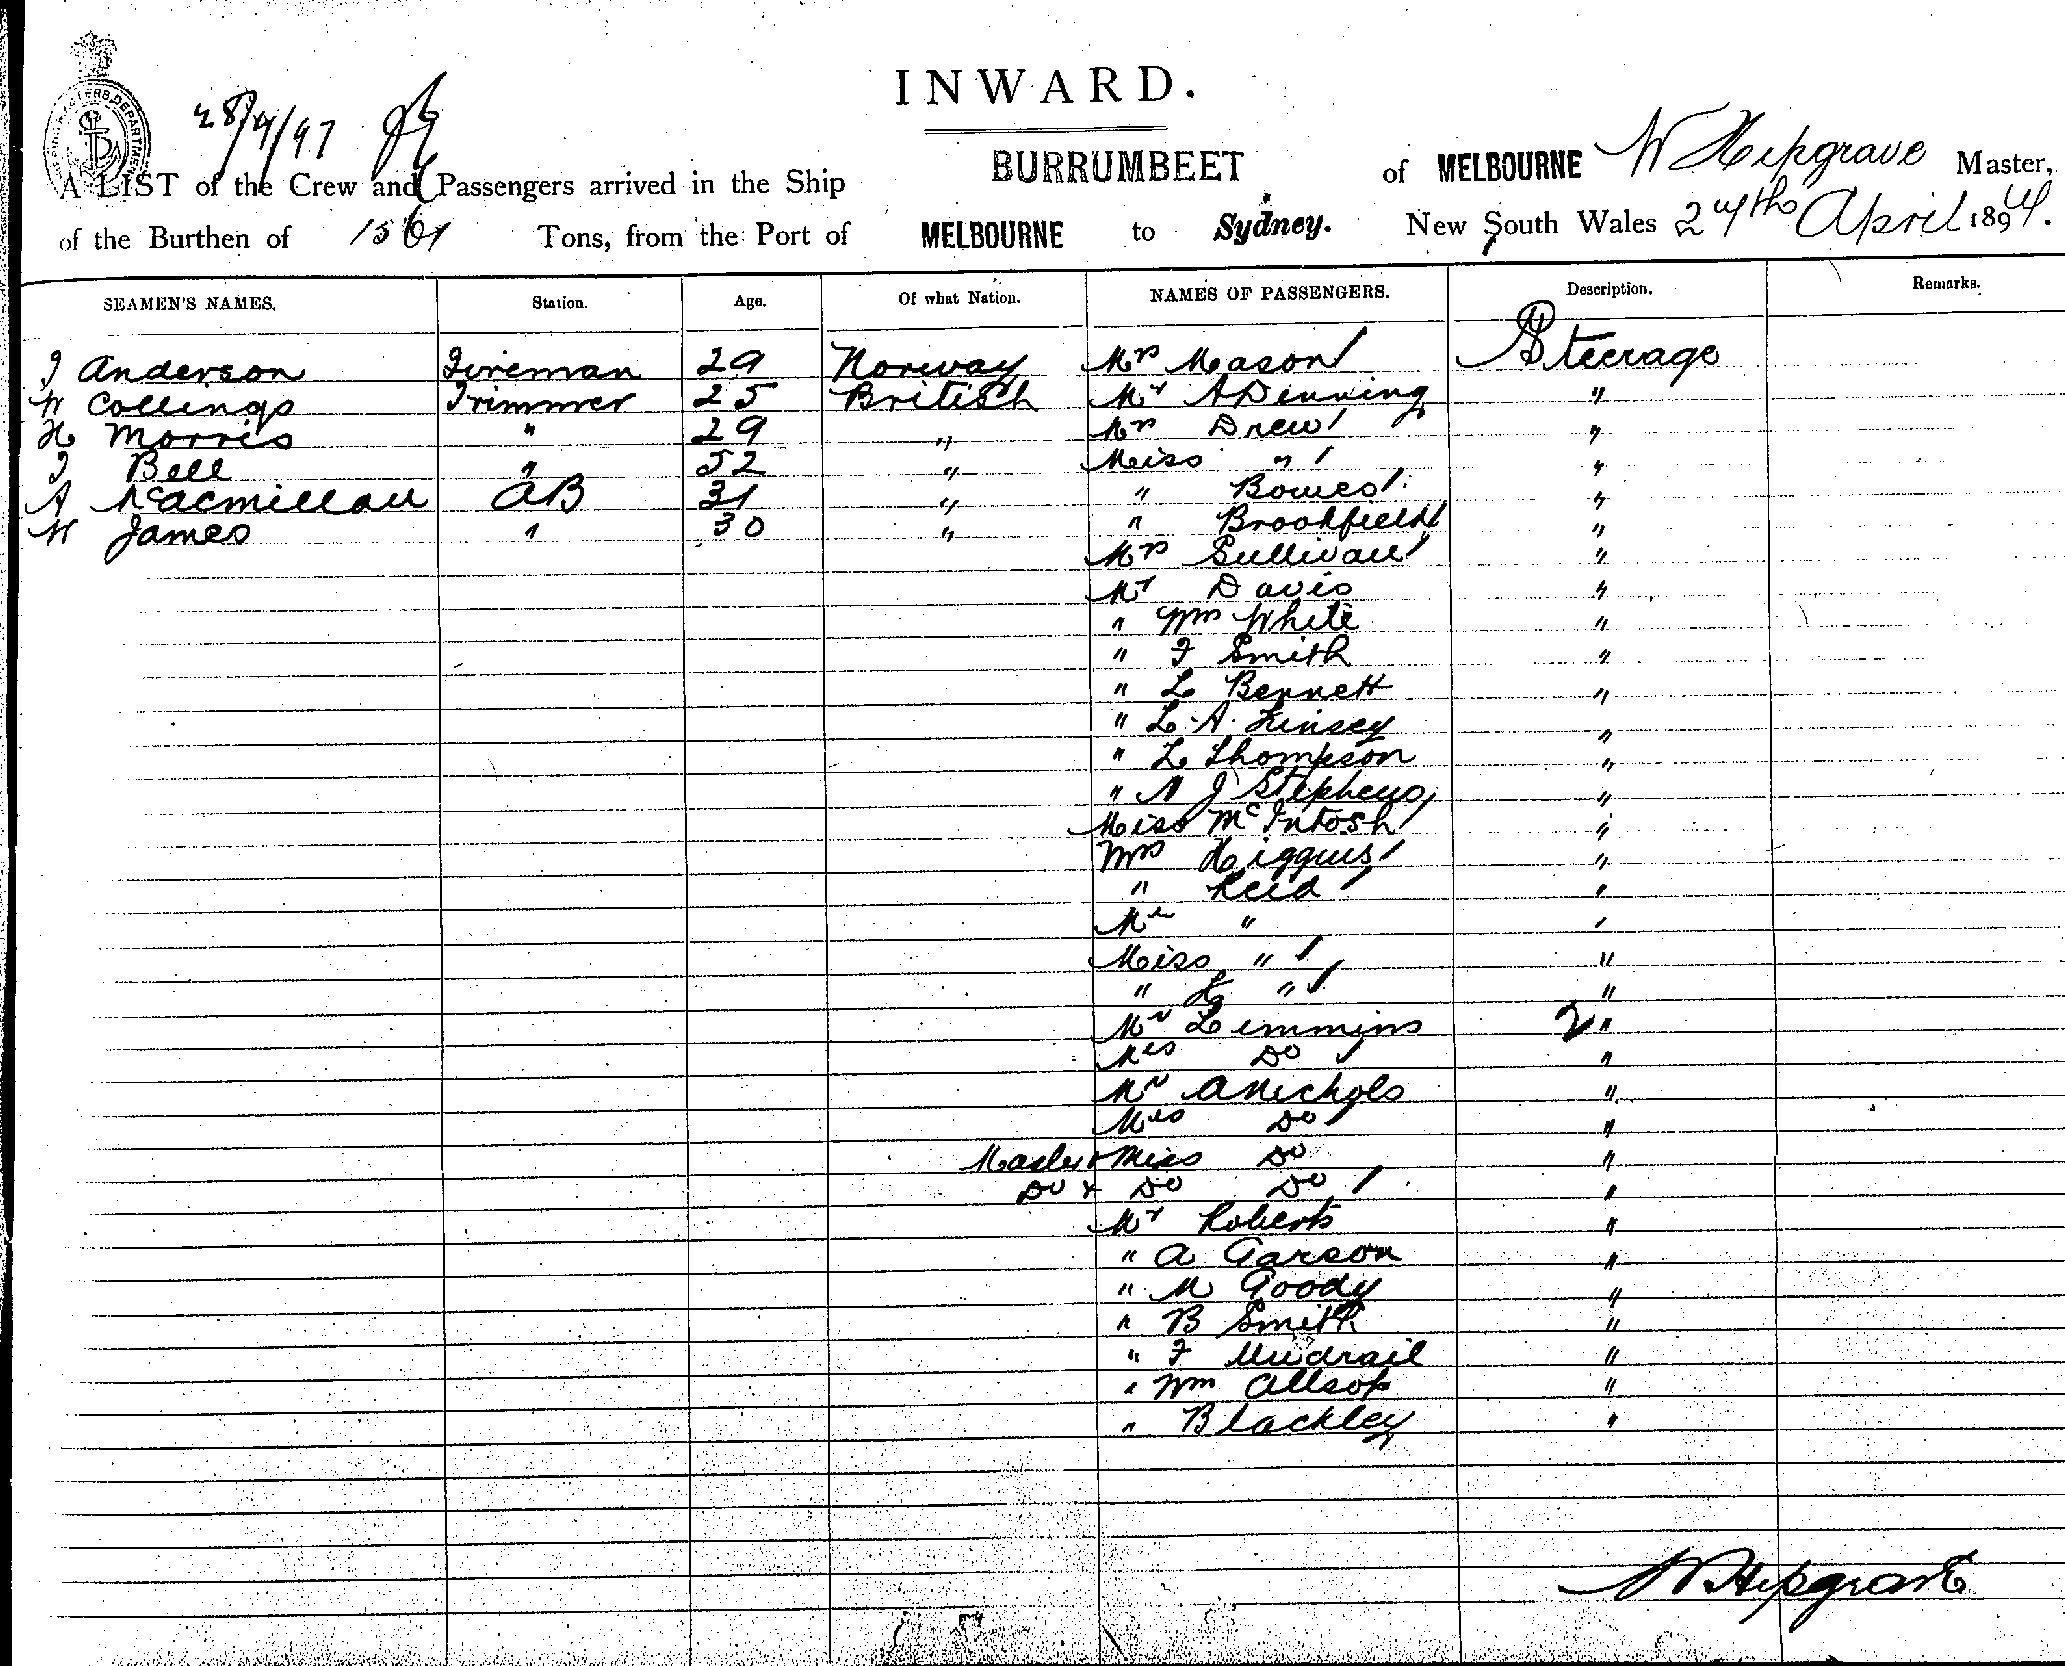 INWARD.
28/4/97
A LIST of the Crew and Passengers arrived in the Ship BURRUMBEET of MELBOURNE W Hipgrave Master,
of the Burthen of 1561 Tons, from the Port of MELBOURNE to Sydney. New South Wales 27th April 1897.
SEAMEN'S NAMES. Station. Age. Of what Nation. NAMES OF PASSENGERS. Description. Remarks.
J Anderson Fireman 29 Norway Mrs Mason Steerage
W Collings Trimmer 25 British Mr A Denning "
H Morris " 29 " Mrs Drew "
J Bell " 52 " Miss " "
A Macmillan AB 31 " " Bowes "
W James " 30 " " Brookfield "
Mrs Sullivan "
Mr Davis "
" Wm White "
" F Smith "
" L Bennett "
" L. A. Kinsey "
" L Thompson "
" A J Stephens "
Miss McIntosh "
Mrs Higgins "
" Reid "
Mr " "
Miss " "
" H " "
Mr Lemmins "
Mrs Do "
Mr A Nichols "
Mrs Do "
Master & Miss Do "
Do & Do Do "
Mr Roberts "
" A Garson "
" M Goody "
" B Smith "
" F "
" Wm Allsop "
" Blackley "
W Hipgrave